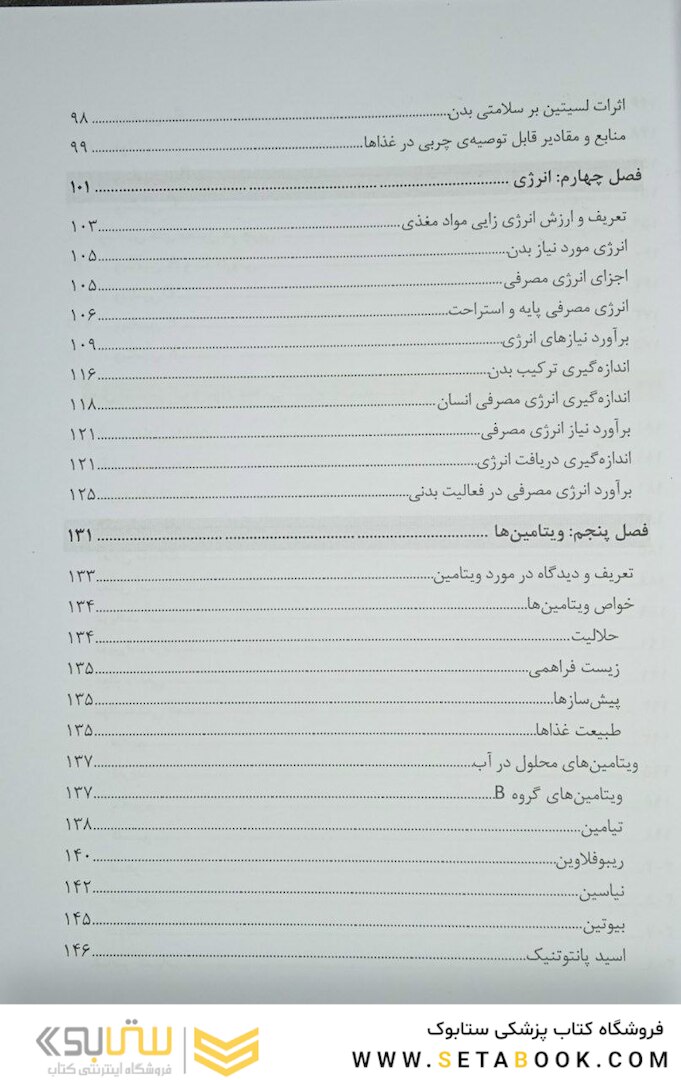 اثرات لسیتین بر سلامتی بدن ۹۸
منابع و مقادیر قابل توصیه‌ی چربی در غذاها ۹۹
فصل چهارم: انرژی ۱۰۱
تعریف و ارزش انرژی زایی مواد مغذی ۱۰۳
انرژی مورد نیاز بدن ۱۰۵
اجزای انرژی مصرفی ۱۰۵
انرژی مصرفی پایه و استراحت ۱۰۶
برآورد نیازهای انرژی ۱۰۹
اندازه‌گیری ترکیب بدن ۱۱۶
اندازه‌گیری انرژی مصرفی انسان ۱۱۸
برآورد نیاز انرژی مصرفی ۱۲۱
اندازه‌گیری دریافت انرژی ۱۲۱
برآورد انرژی مصرفی در فعالیت بدنی ۱۲۵
فصل پنجم: ویتامین‌ها ۱۳۱
تعریف و دیدگاه در مورد ویتامین ۱۳۳
خواص ویتامین‌ها ۱۳۴
حلالیت ۱۳۴
زیست فراهمی ۱۳۵
پیش‌سازها ۱۳۵
طبیعت غذاها ۱۳۵
ویتامین‌های محلول در آب ۱۳۷
ویتامین‌های گروه B ۱۳۷
تیامین ۱۳۸
ریبوفلاوین ۱۴۰
نیاسین ۱۴۲
بیوتین ۱۴۵
اسید پانتوتنیک ۱۴۶
فروشگاه کتاب پزشکی ستابوک
WWW.SETABOOK.COM
ستابوک
فروشگاه اینترنتی کتاب